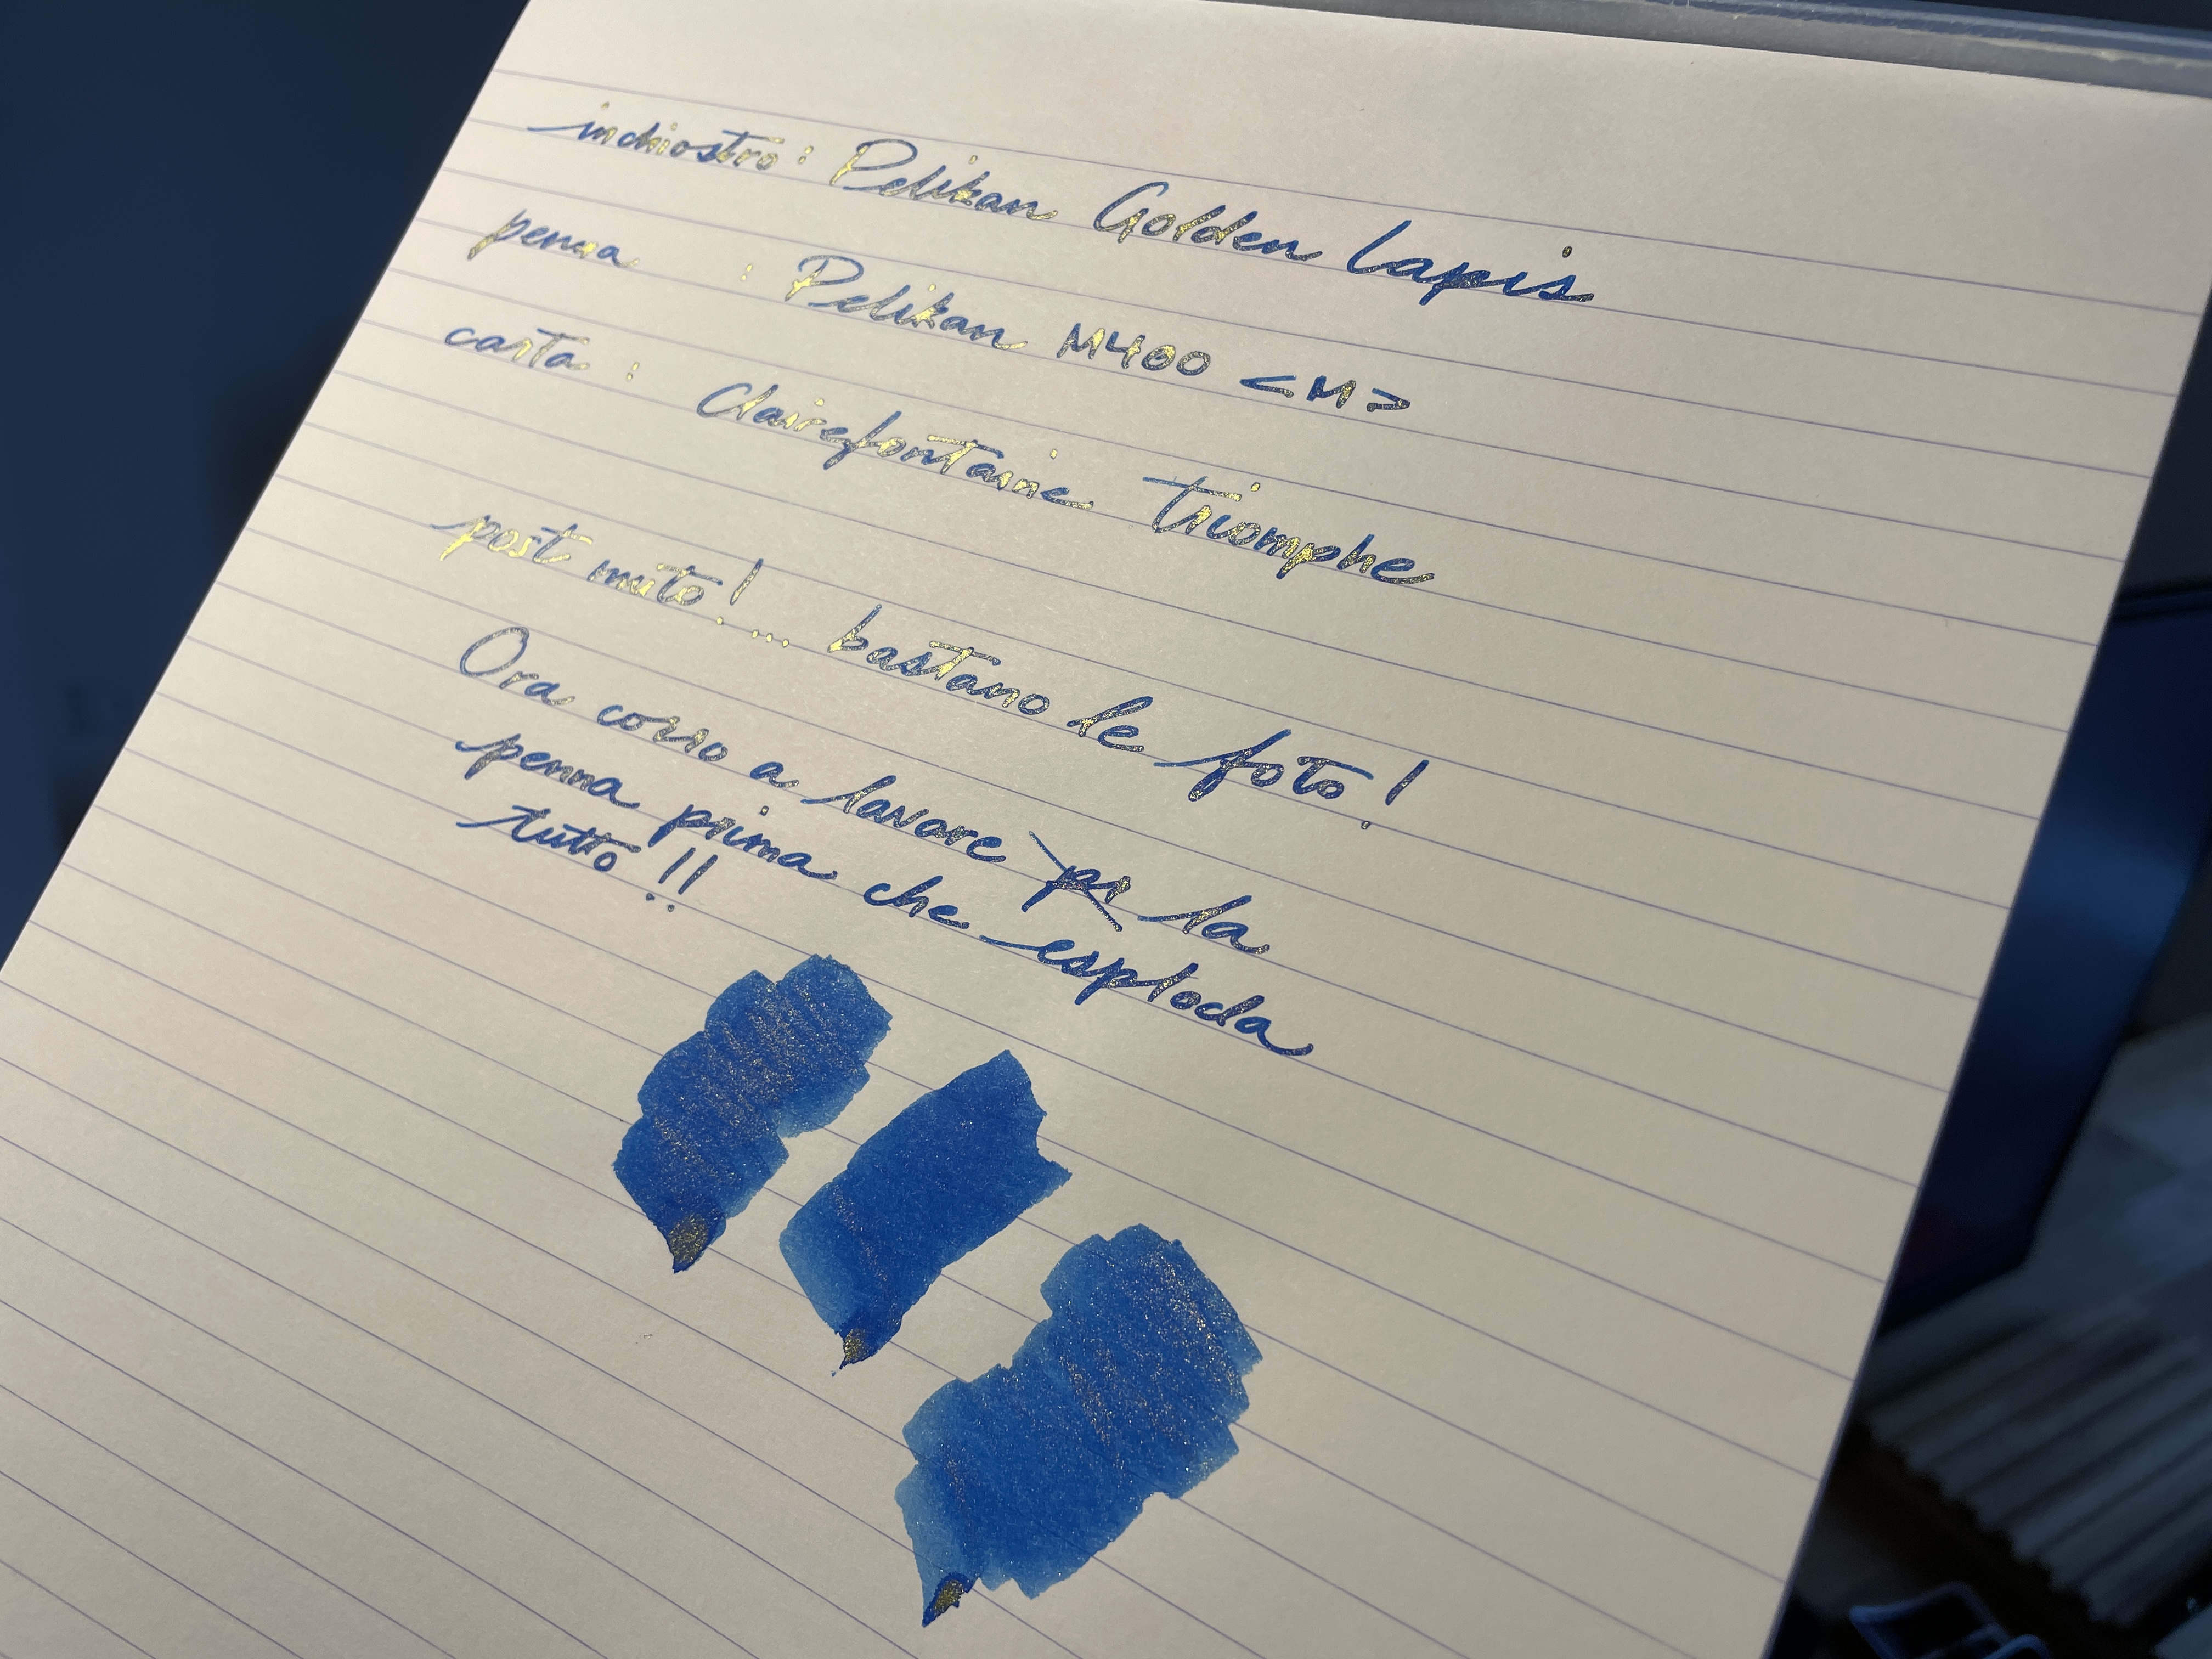 inchiostro: Pelikan Golden Lapis
penna : Pelikan M400 <M>
carta : Clairefontaine Triomphe
post muto! ... bastano le foto!
Ora corro a lavare pr la
penna prima che esploda
tutto!!